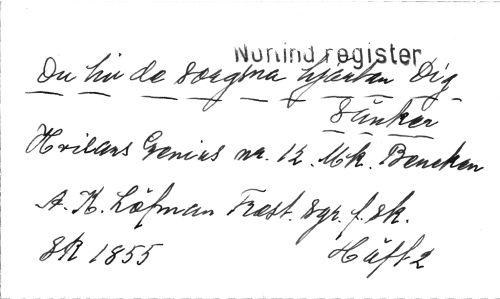 Nottind register
Du hu de sorgsna hjertan Dig
sänker
Hvilans Genius nr. 12. Mk. Bencken
A. K. Löfman Fæst. sgr. f. sk.
SR 1855 Häft 2